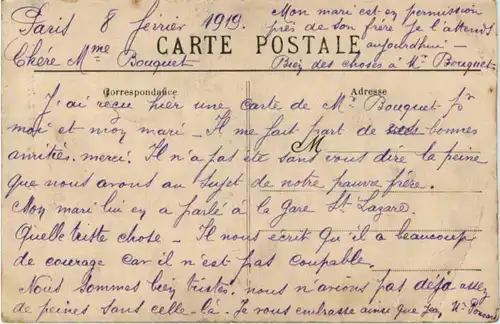 Paris 8 février 1919.
Mon mari est en permission
près de son frère Je l'attends
aujourdhui -
CARTE POSTALE
Chére Mme Bouquet -
Bien des choses à Mr Bouquet -
Correspondance
Adresse
J'ai reçu hier une carte de Mr Bouquet pr
moi et mon mari - Il me fait part de ses bonnes
M
amitiés. merci. Il n'a pas été sans vous dire la peine
que nous avons au sujet de notre pauvre frère.
Mon mari lui en a parlé à la gare St Lazare
Quelle triste chose - Il nous écrit qu'il a beaucoup
de courage car il n'est pas coupable
Nous sommes bien tristes. nous n'avions pas déjà assez
de peines sans celle-là. Je vous embrasse ainsi que